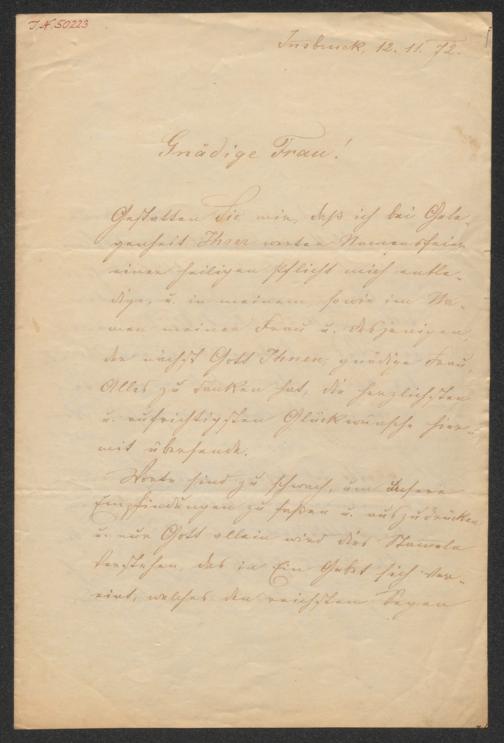 J.N. 50223
Insbruck, 12. 11. 72.
Gnädige Frau!
Gestatten Sie mir, daß ich bei Gele-
genheit Ihrer werten Namensfeier
einer heiligen Pflicht mich entle-
dige, u. in meinem sowie im Na-
men meiner Frau u. desjenigen,
der nächst Gott Ihnen, gnädige Frau,
Alles zu danken hat, die herzlichsten
u. aufrichtigsten Glückwünsche hier-
mit übersende.
Worte sind zu schwach, um unsere
Empfindungen zu faßen u. auszudrücken
u. nur Gott allein wird dies Stameln
verstehen, das in Ein Gebet sich ver-
eint, welches den reichsten Segen